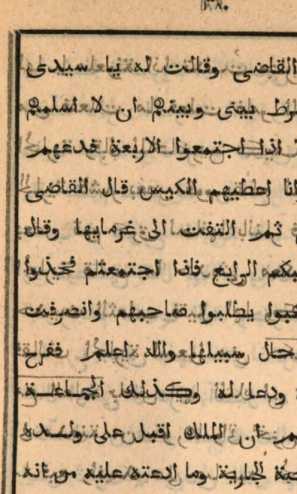 القاضي وقالت له يا سيدي
بيني وبينهم ان لا اسلمهم
اذا اجتمعوا الاربعة فدعهم
انا اعطيهم الكيس قال القاضي
ثم التفت الى غرمايها وقال
الرابع فاذا اجتمعتم فخذوا
يطلبوا صاحبهم وانصرفت
حال سبيلها والله اعلم ففرح
ودعا له وكذلك الجماعة
ان الملك اقبل على ولده
الجارية وما ادعته عليه من انه